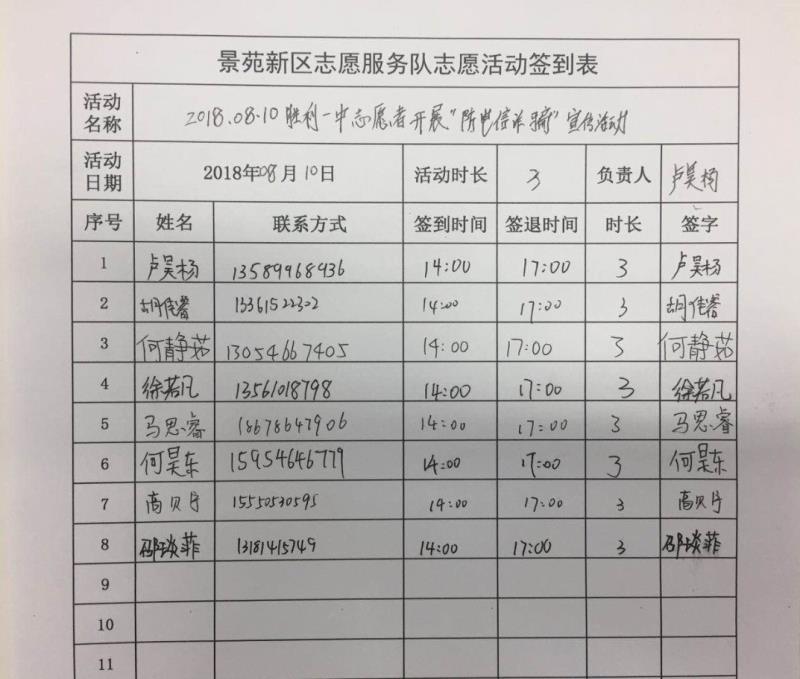 景苑新区志愿服务队志愿活动签到表
活动名称 2018.08.10胜利一中志愿者开展“防电信诈骗”宣传活动
活动日期 2018年08月10日 活动时长 3 负责人 卢昊杨
序号 姓名 联系方式 签到时间 签退时间 时长 签字
1 卢昊杨 13589968936 14:00 17:00 3 卢昊杨
2 胡倩睿 13361522302 14:00 17:00 3 胡倩睿
3 何静茹 13054667405 14:00 17:00 3 何静茹
4 徐若凡 13561018798 14:00 17:00 3 徐若凡
5 马思睿 18678647906 14:00 17:00 3 马思睿
6 何昊东 15954646779 14:00 17:00 3 何昊东
7 高贝宁 15550530595 14:00 17:00 3 高贝宁
8 邵琰菲 13181415749 14:00 17:00 3 邵琰菲
9
10
11